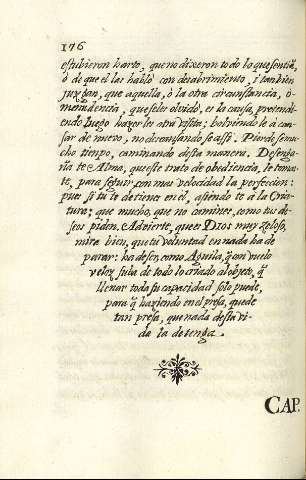 176
estubieron harto, que no dixeron todo lo que sentiã,
ò de que el las hablò con desabrimiento, i tambien
juzgan, que aquella, ò la otra circunstancia, ò
menudencia, que seles olvidò, es la causa, pretendi-
endo luego hazerles otra visita; bolviendole à can-
sar de nuevo, no descansando se assi. Pierdese mu-
cho tiempo, caminando desta manera. Desenga-
ña te Alma, que este trato de obediencia, le toma-
te, para seguir con mas velocidad la perfeccion:
pues si tu te detienes en el, asiendo te à la Cria-
tura; que mucho, que no camines, como tus de-
seos piden. Advierte, que es Dios muy zeloso,
mire bien, que tu voluntad en nada ha de
parar: ha de ser, como Aguila, q̃ con vuelo
veloz suba de todo lo criado al objeto, q̃
llenar toda su capacidad solo puede,
para q̃ haziendo en el presa, quede
tan presa, que nada desta vi-
da la detenga.
CAP.